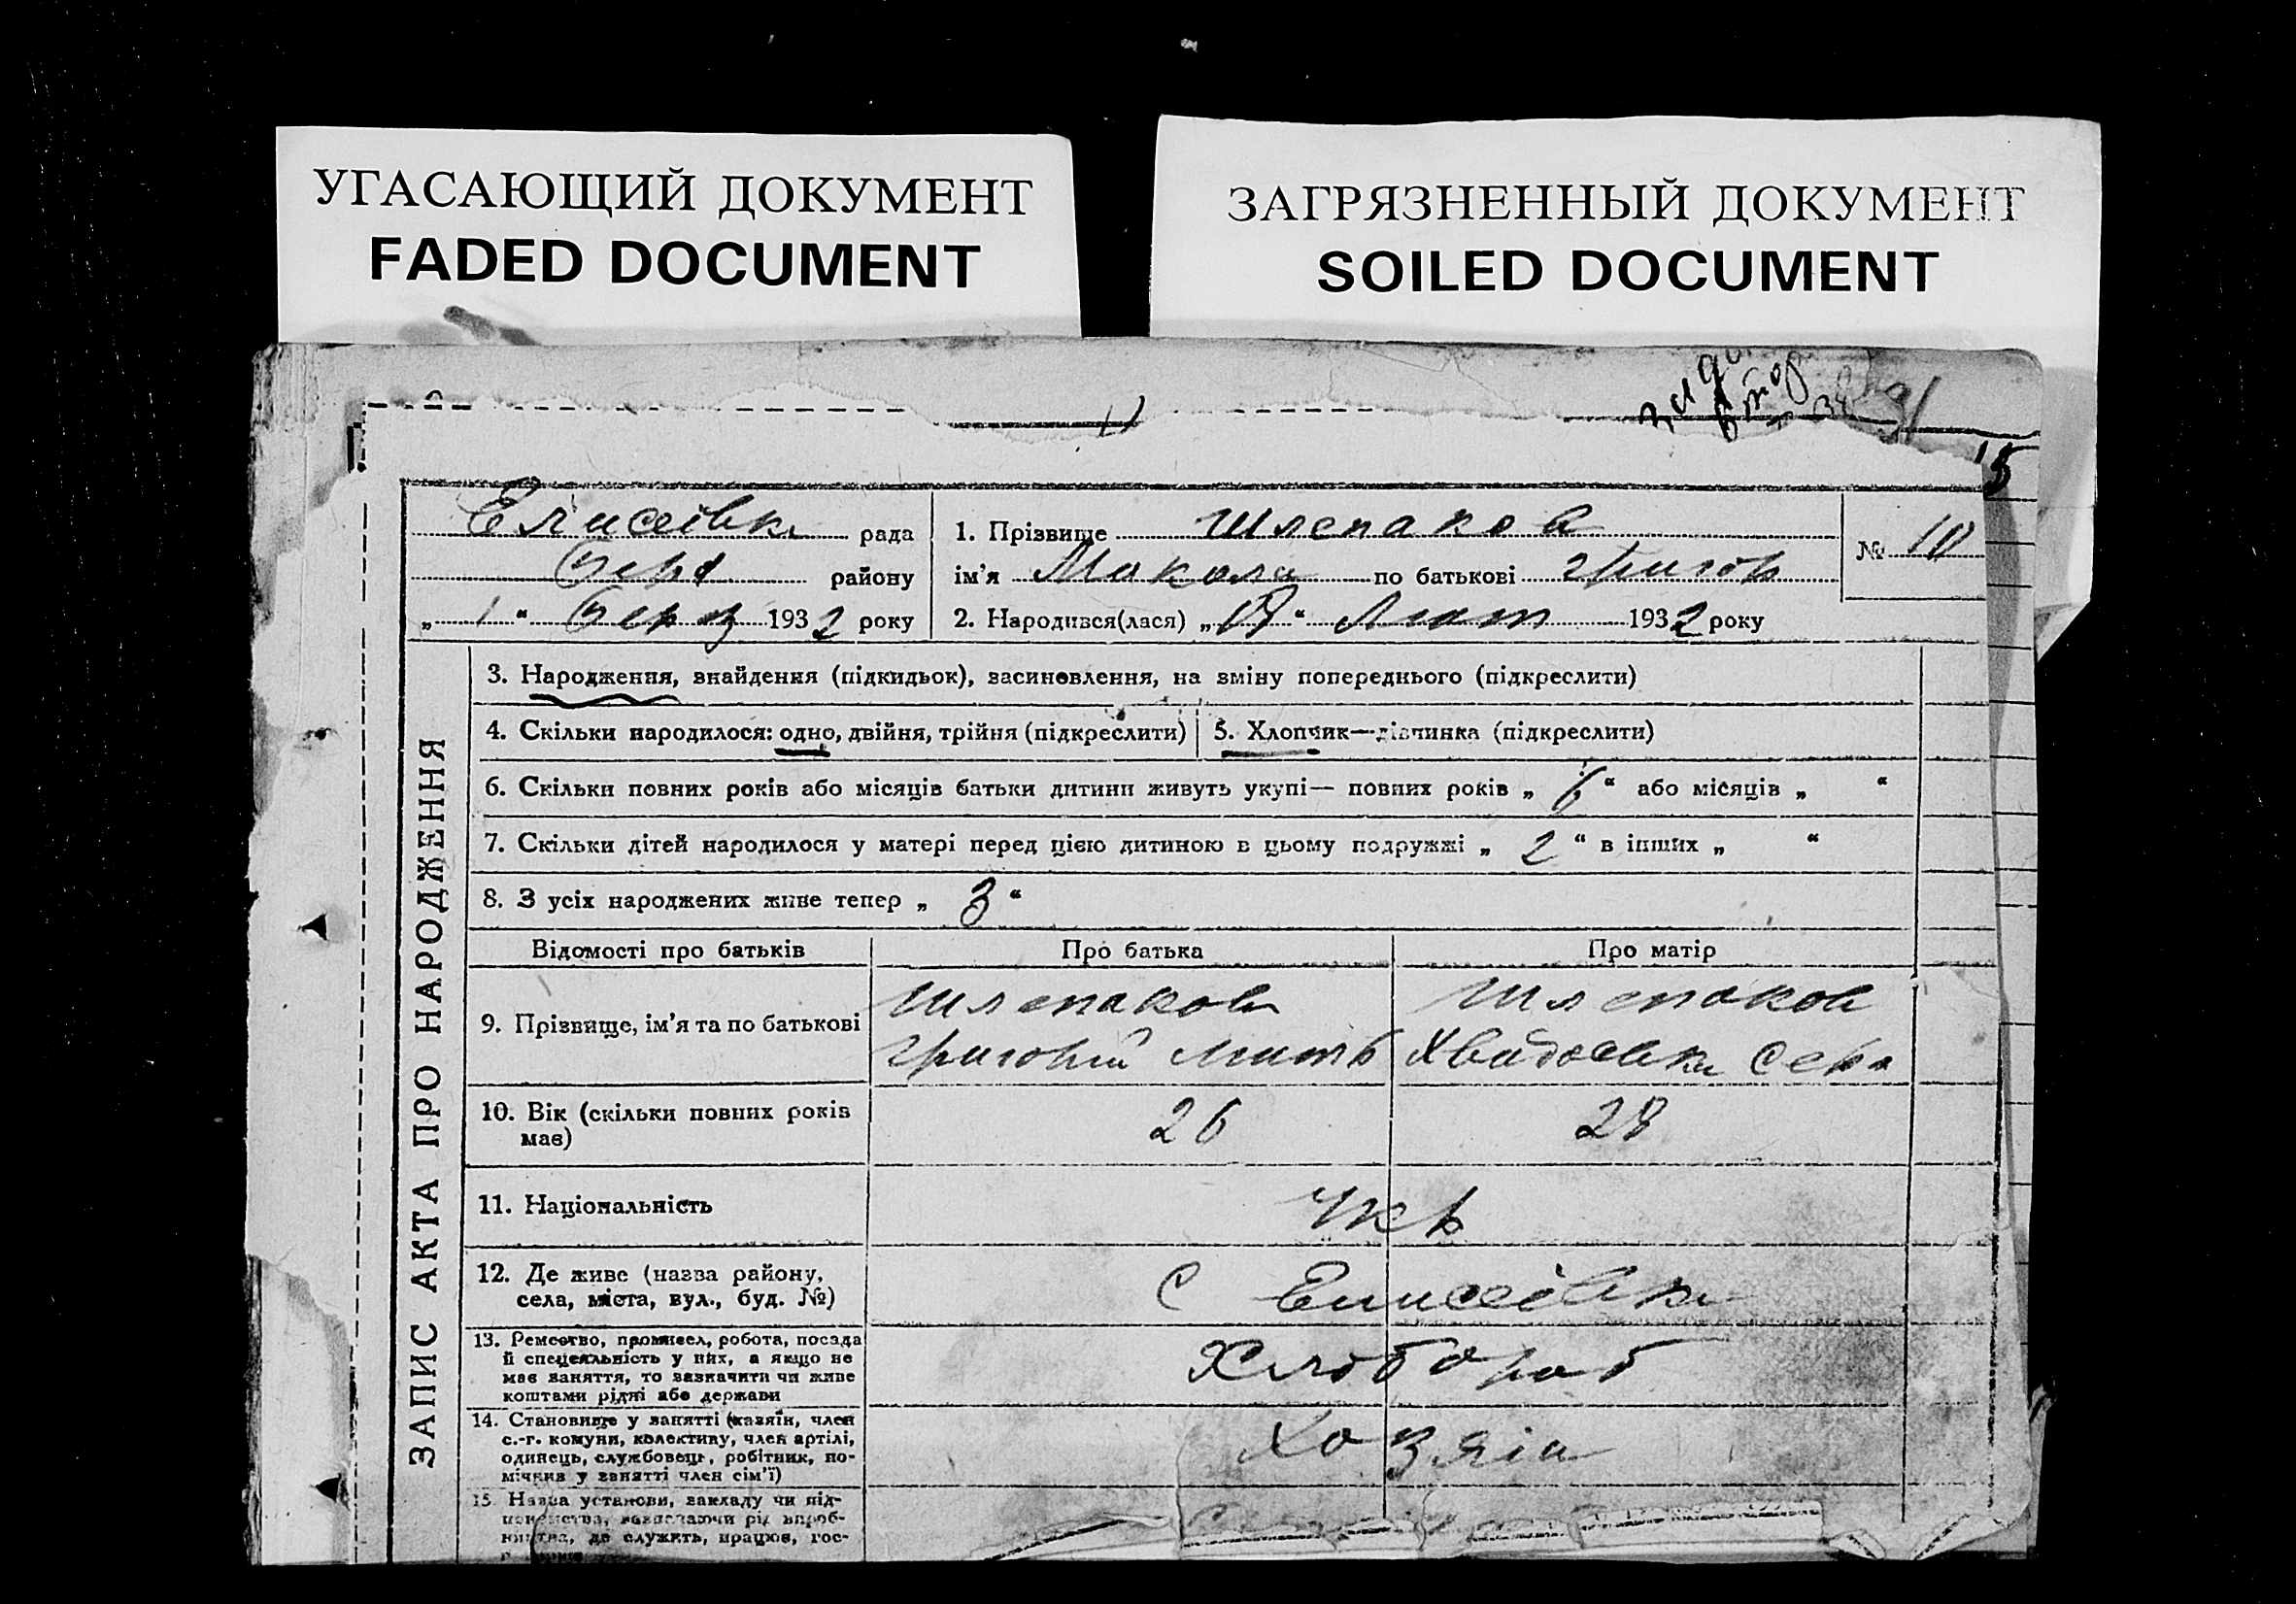 УГАСАЮЩИЙ ДОКУМЕНТ
FADED DOCUMENT
ЗАГРЯЗНЕННЫЙ ДОКУМЕНТ
SOILED DOCUMENT
15
ЗАПИС АКТА ПРО НАРОДЖЕННЯ
Елисеівки рада
району
„ 1 “ Берез 1932 року
1. Прізвище Шлепаков
ім'я Микола по батькові Григор
2. Народився(лася) „ “ Лют 1932 року
№ 10
3. Народження, знайдення (підкидьок), засиновлення, на зміну попереднього (підкреслити)
4. Скільки народилося: одно, двійня, трійня (підкреслити)
5. Хлопчик—дівчинка (підкреслити)
6. Скільки повних років або місяців батьки дитини живуть укупі— повних років „ 6 “ або місяців „ “
7. Скільки дітей народилося у матері перед цією дитиною в цьому подружжі „ 2 “ в інших „ “
8. З усіх народжених живе тепер „ 3 “
Відомості про батьків Про батька Про матір
9. Прізвище, ім'я та по батькові
Шлепаков
Григорій
Шлепаков
10. Вік (скільки повних років
має)
26 28
11. Національність
Укр
12. Де живе (назва району,
села, міста, вул., буд. №)
С Елисеівки
13. Ремество, промисел, робота, посада
й спеціяльність у них, а якщо не
має заняття, то зазначити чи живе
коштами рідні або держави
Хлібороб
14. Становище у занятті (хазяїн, член
с.-г. комуни, колективу, член артілі,
одинець, службовець, робітник, по-
мічник у занятті член сім'ї)
Хозяін
15. Назва установи, закладу чи під-
приємства, зазначаючи рід вироб-
ництва, де служить, працює, гос-